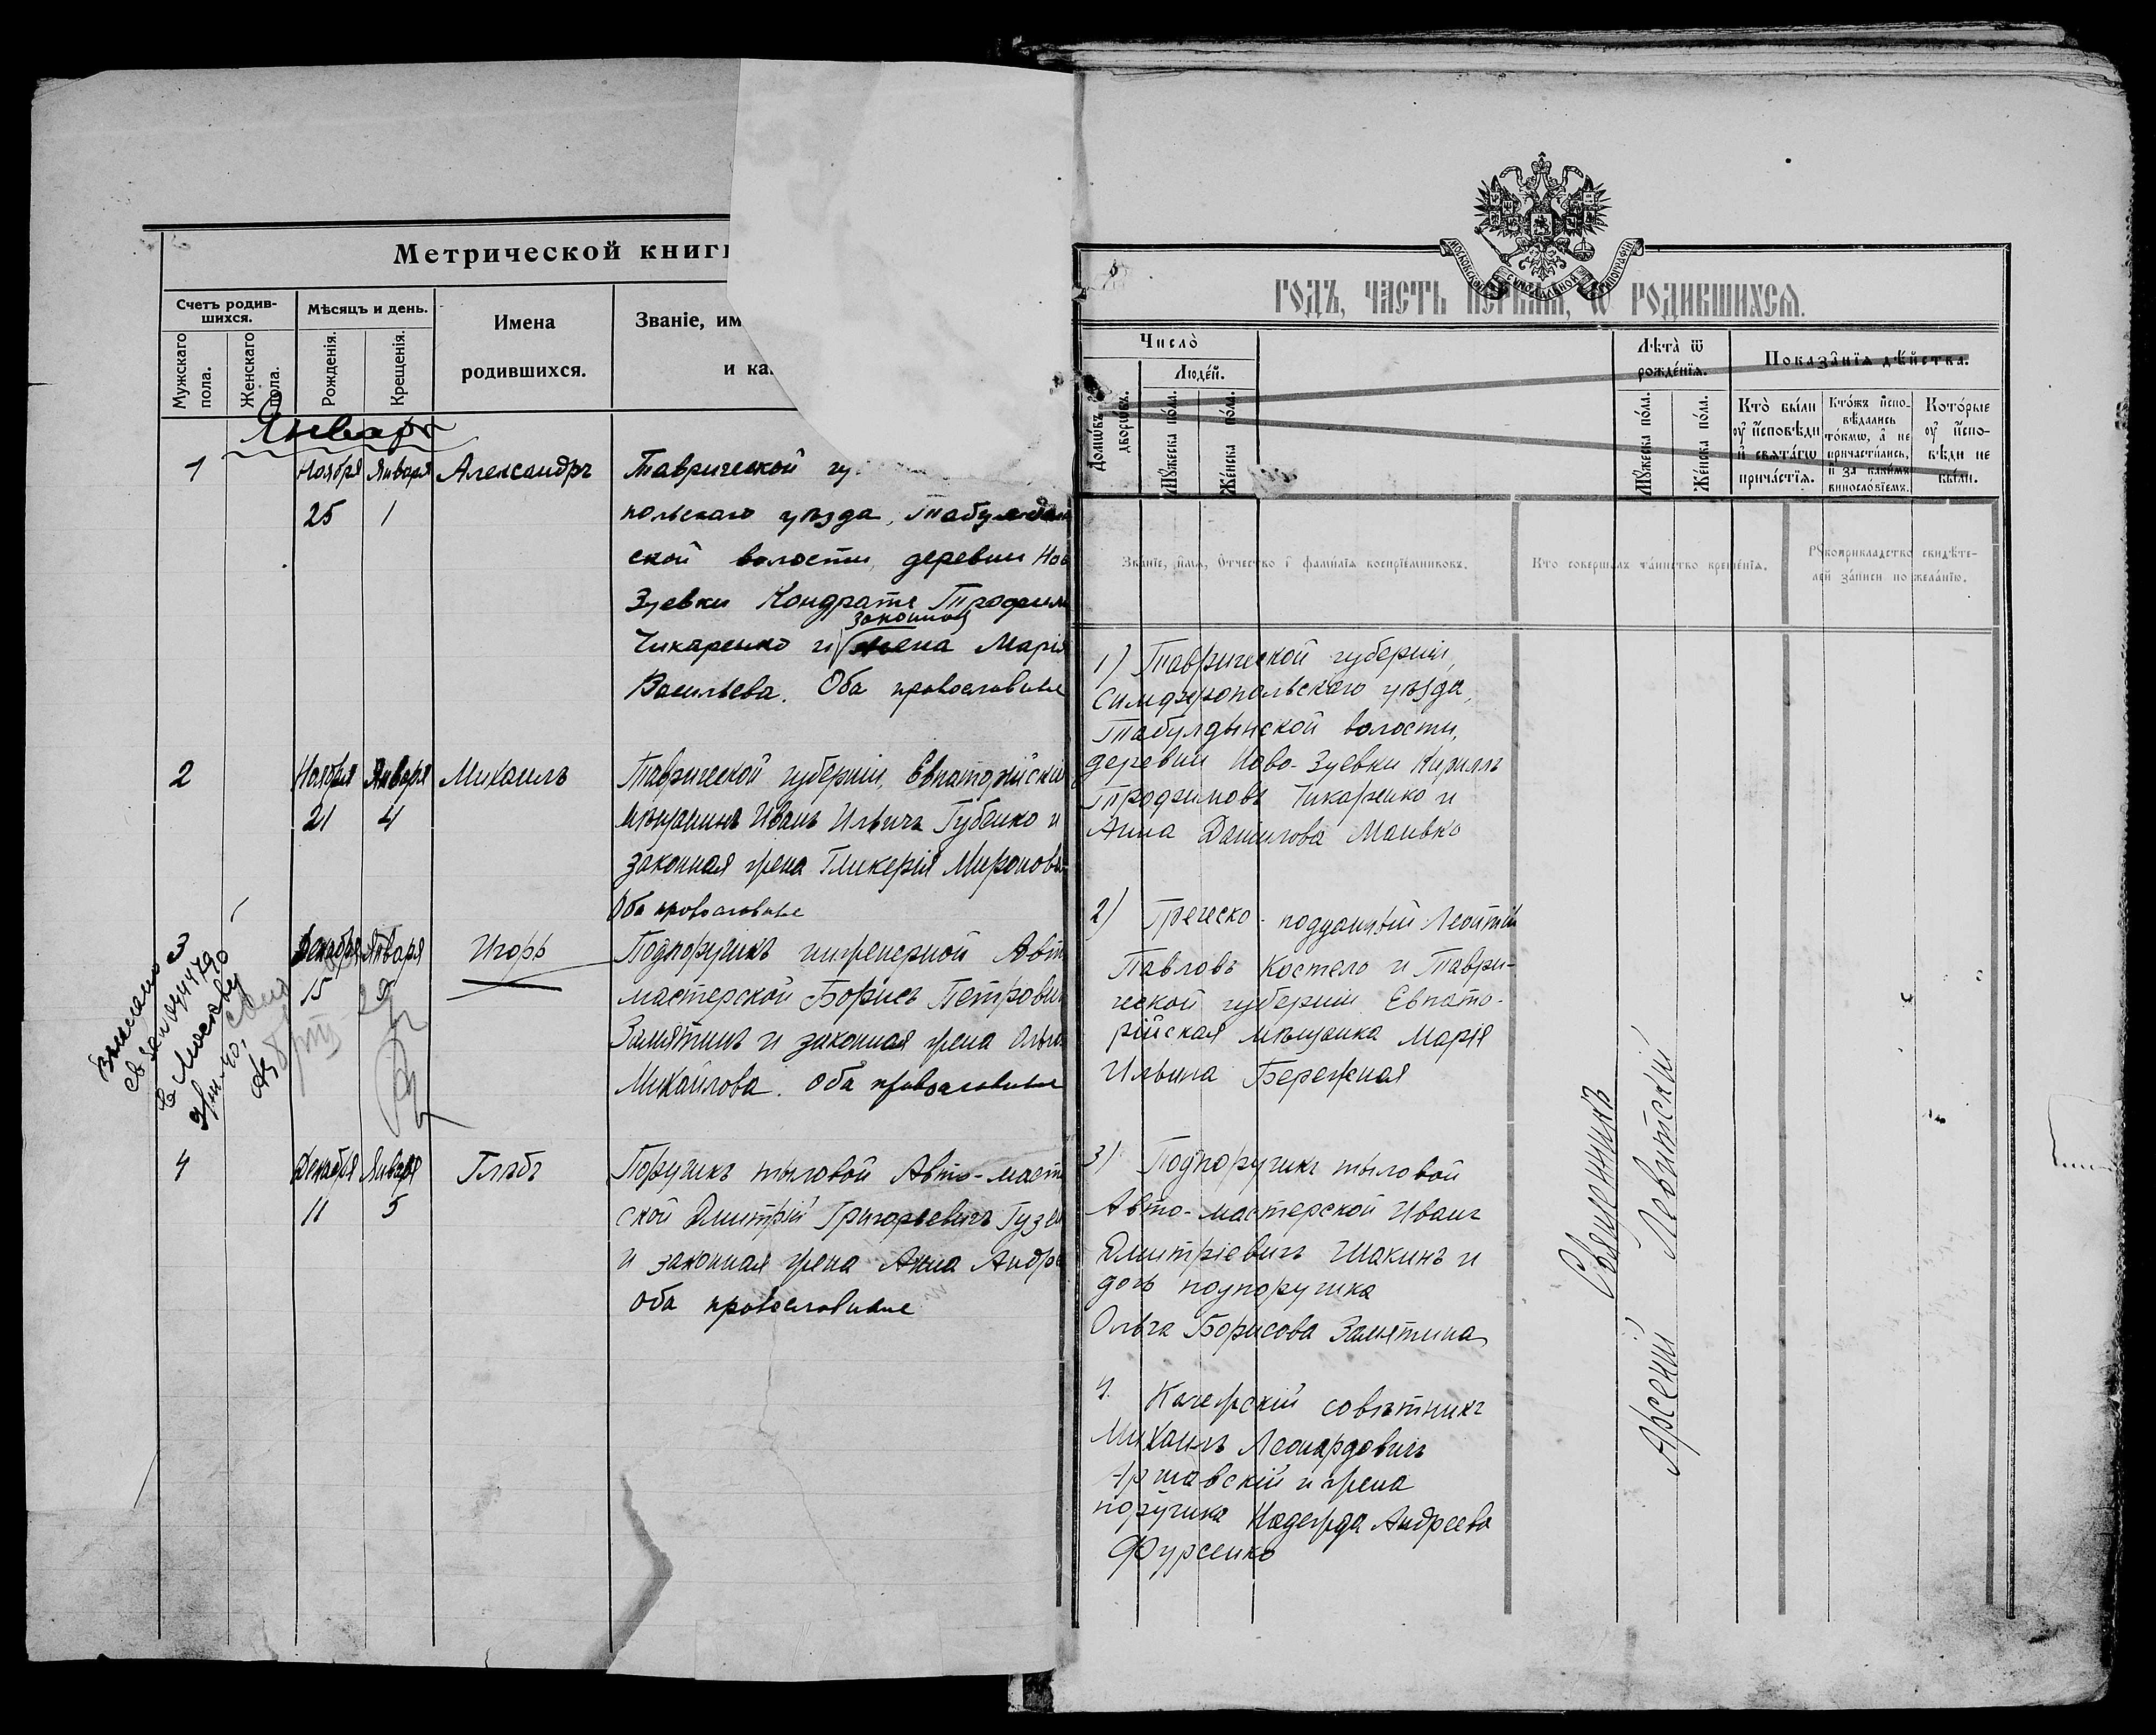 Метрической книги
Счетъ родив-
шихся.
Мѣсяцъ и день.
Имена
родившихся.
Званіе, им
и ка
Мужскаго
пола.
Женскаго
пола.
Рожденія.
Крещенія.
Январь
1
Ноября
25
Января
1
Александръ
Таврической гу
польскаго уѣзда, Табулдын
ской волости, деревни Нов
Зуевки Кондратъ Трофим
законная
Чикаренко и жена Марія
Васильева. Оба православные
2
Ноября
21
Января
4
Михаилъ
Таврической губерніи, Евпаторійскій
мѣщанинъ Иванъ Ильичъ Губенко и
законная жена Гликерія Миронова
Оба православные
3
Декабря
15
Января
Игорь
Подпоручикъ инженерной Авт
мастерской Борисъ Петрович
Замятинъ и законная жена Ольга
Михайлова. Оба православные
в Москву
4
Декабря
11
Января
5
Глѣбъ
Поручикъ тыловой Авто-маст
ской Дмитрій Григорьевичъ Гузе
и законная жена Анна Андре
Оба православные
МОСКОВСКОЙ СѴНОДАЛЬНОЙ ТИПОГРАФІИ
ГОДЪ, ЧАСТЬ ПЕРВАЯ, Ѡ РОДИВШИХСЯ.
Число̀
Людей.
Домѡвъ
дворѡвъ.
Мꙋжеска по́ла.
Же́нска по́ла.
Лѣта̀ ѿ
рожде́нїѧ.
Мꙋжеска по́ла.
Же́нска по́ла.
Показа̑нїѧ дѣ́йства.
Кто̀ бы́ли
ᲂу҆ и҆сповѣди
и҆ свѧта́гѡ
прича́стїѧ.
Кто́жъ и҆спо-
вѣдались
то́кмѡ, а҆ не
причасти́лись,
и҆ за каки́мъ
виносло́вїемъ.
Кото́рые
ᲂу҆ и҆спо-
вѣди не
бы́ли.
Зва́нїе, и҆́мѧ, ѻ҆́тчество и҆ фами́лїѧ воспрїе́мниковъ.
Кто соверша́лъ та́инство креще́нїѧ.
Рꙋкоприкладство свидѣте-
лей за́писи по жела́нїю.
1) Таврической губерніи,
Симферопольскаго уѣзда,
Табулдынской волости,
деревни Ново-Зуевки Кириллъ
Трофимовъ Чикаренко и
Анна Даніилова Манько
2) Греческо-подданный Леонтій
Павловъ Костело и Таври-
ческой губерніи Евпато-
рійская мѣщанка Марія
Ильина Бережная
3) Подпоручикъ тыловой
Авто-мастерской Иванъ
Дмитріевичъ Шакинъ и
дочь подпоручика
Ольга Борисова Замятина
4. Коллежскій совѣтникъ
Михаилъ Леонардовичъ
и жена
поручика Надежда Андреева
Фурсенко
Священникъ
Арсеній Левитскій